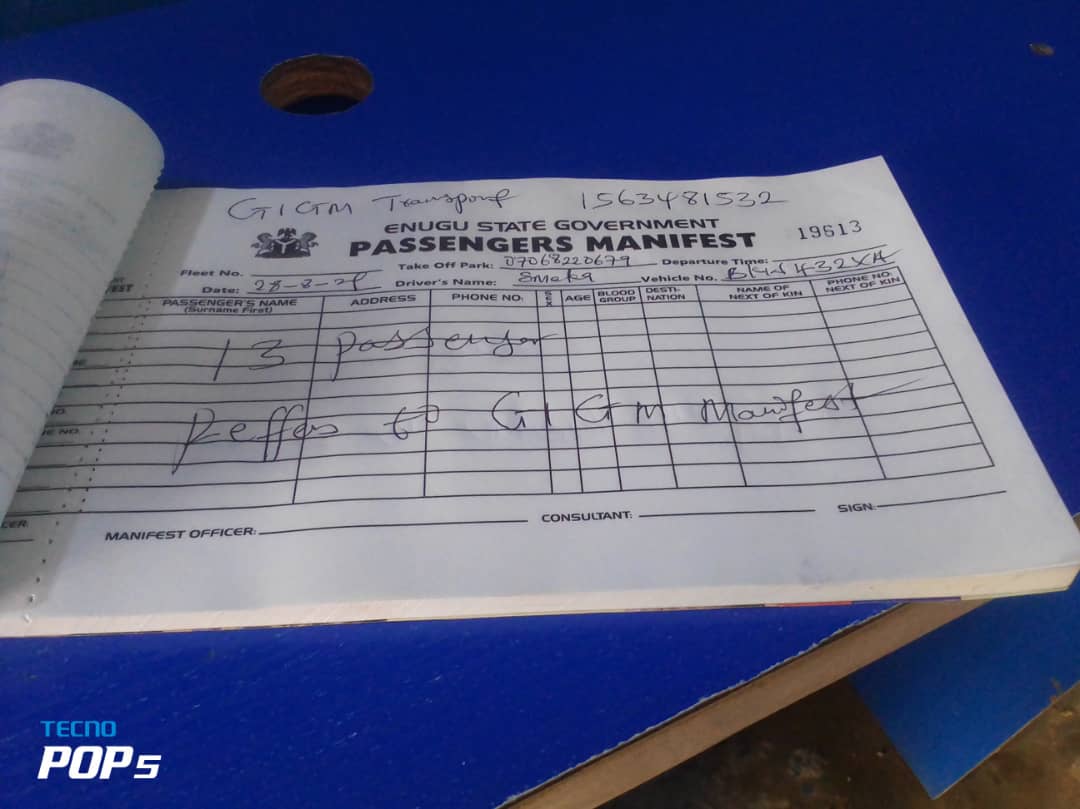 GIGM Transport 1563481532
ENUGU STATE GOVERNMENT
PASSENGERS MANIFEST
19613
Fleet No. Take Off Park: 07068220679 Departure Time:
Date: 28-8-21 Driver's Name: Emeka Vehicle No. 432XA
PASSENGER'S NAME
(Surname First)
ADDRESS
PHONE NO.
SEX
AGE
BLOOD
GROUP
DESTI-
NATION
NAME OF
NEXT OF KIN
PHONE NO.
NEXT OF KIN
13 passenger
Reffer to GIGM Manifest
MANIFEST OFFICER: CONSULTANT: SIGN:
TECNO
POP 5